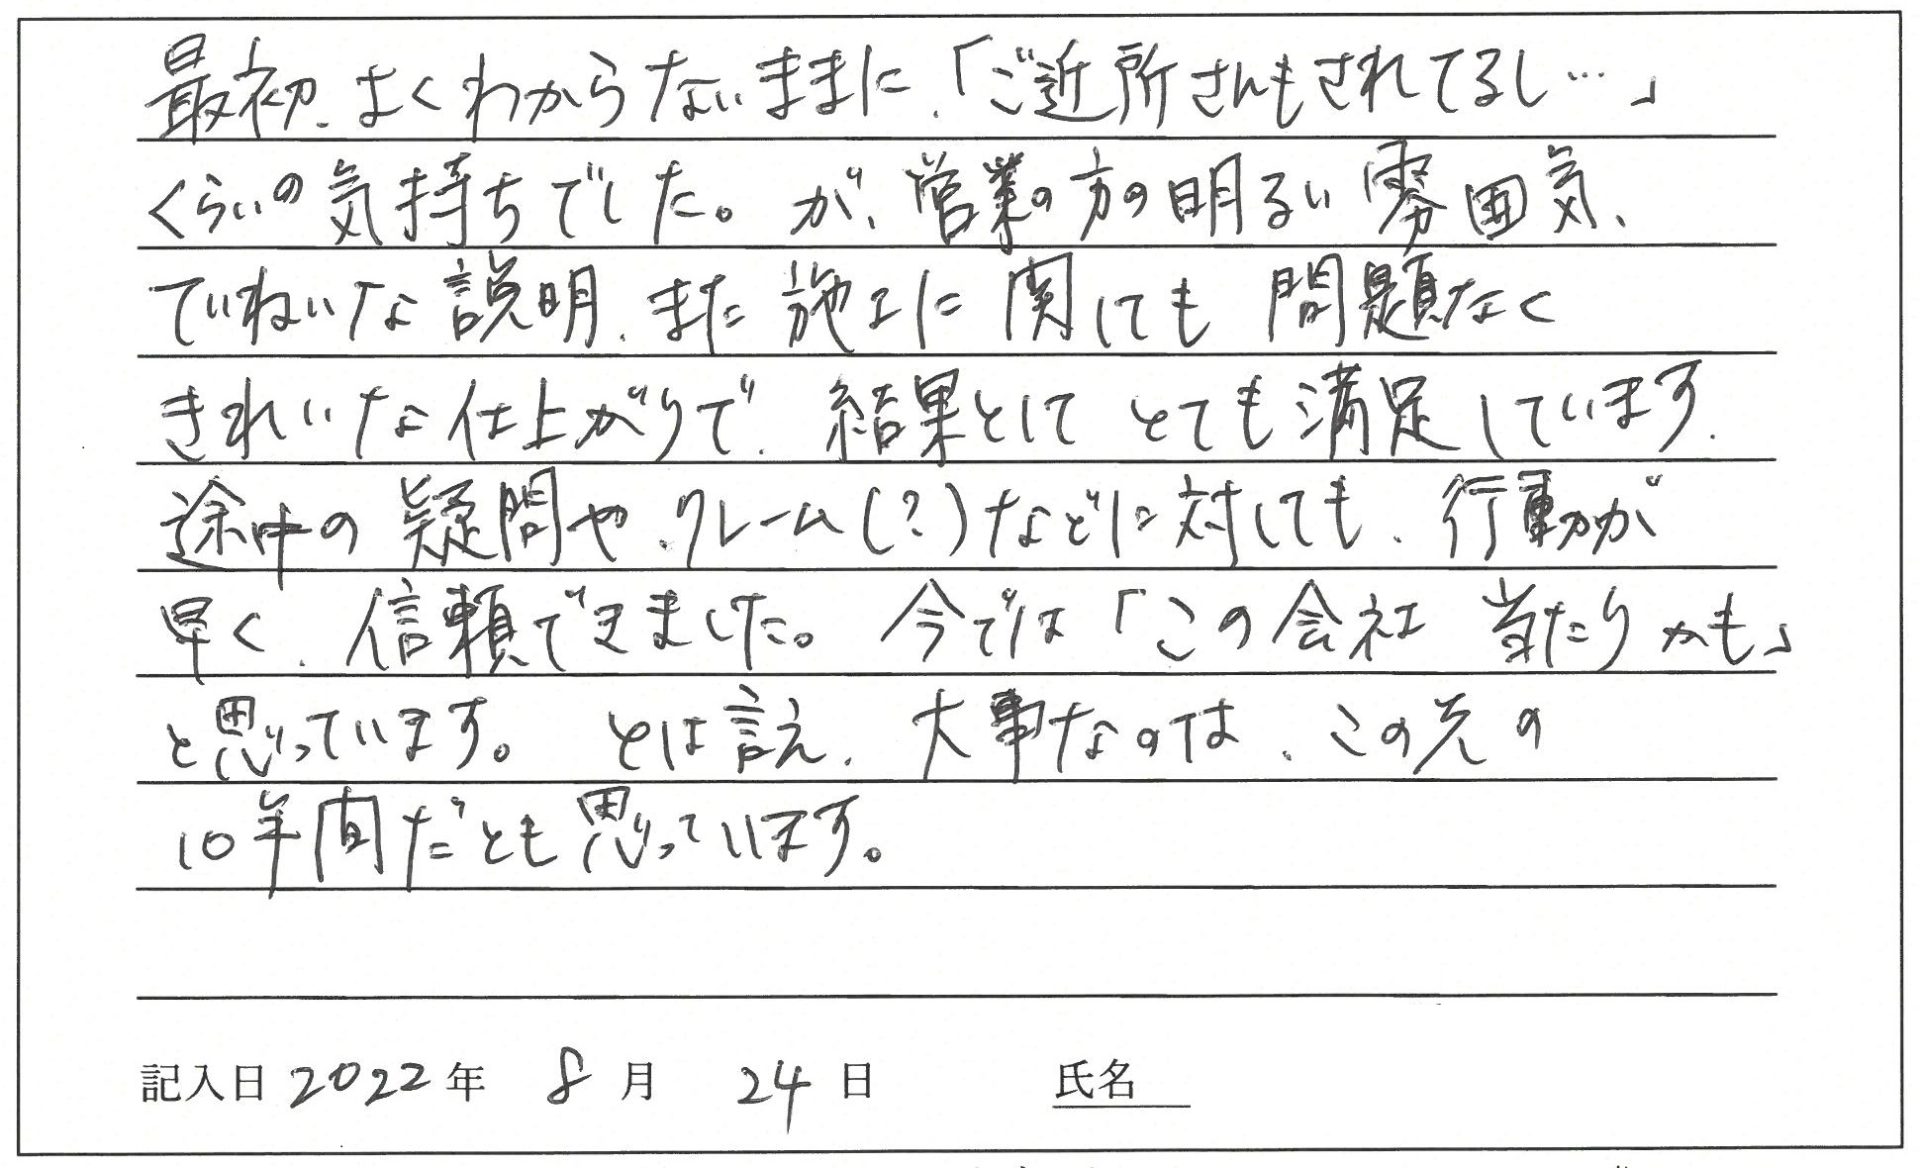 最初、よくわからないままに、「ご近所さんもされてるし…」
くらいの気持ちでした。が、営業の方の明るい雰囲気、
ていねいな説明、また施工に関しても問題なく
きれいな仕上がりで、結果としてとても満足しています。
途中の疑問や、クレーム(?)などに対しても、行動が
早く、信頼できました。今では「この会社 当たりかも」
と思っています。とは言え、大事なのは、この先の
10年間だとも思っています。
記入日 2022年 8月 24日 氏名